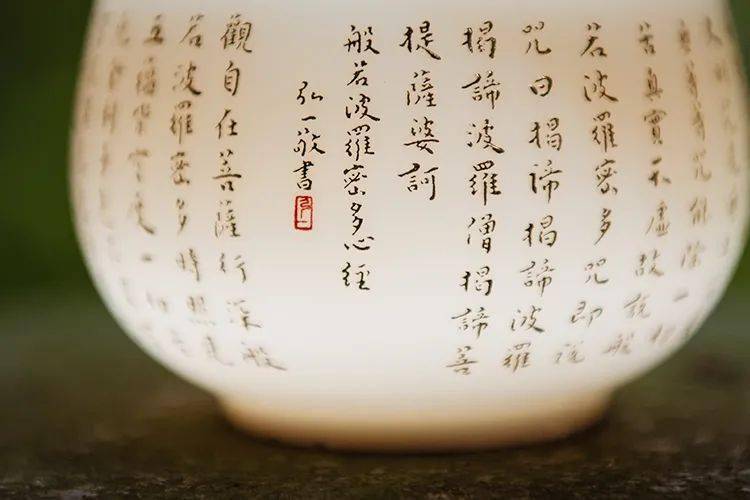 無等等咒能除一切
苦真實不虛故說般
若波羅密多咒即說
咒曰揭諦揭諦波羅
揭諦波羅僧揭諦菩
提薩婆訶
般若波羅密多心經
弘一敬書
弘一
觀自在菩薩行深般
若波羅密多時照見
五蘊皆空度一切